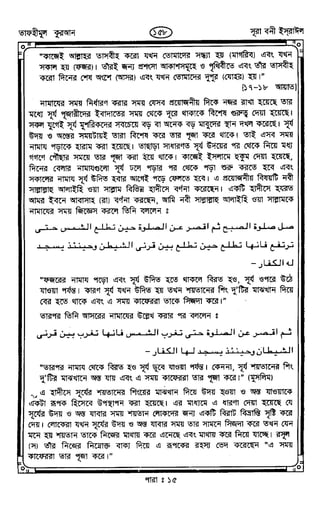 তাফহীমুল কুরআন
১৫৮
সূরা বনী ইসরাঈল
"কাজেই আল্লাহর তাসবীহ করো যখন তোমাদের সন্ধ্যা হয় (মাগরিব) এবং যখন
সকাল হয় (ফজর)। তাঁরই জন্য প্রশংসা আকাশসমূহে ও পৃথিবীতে এবং তাঁর তাসবীহ
করো দিনের শেষ অংশে (আসর) এবং যখন তোমাদের দুপুর (যোহর) হয়।"
[১৭-১৮ আয়াত]
নামাযের সময় নির্ধারণ করার সময় যেসব প্রয়োজনীয় দিকে নজর রাখা হয়েছে তার
মধ্যে সূর্য পূজারীদের ইবাদাতের সময় থেকে দূরে থাকাকে বিশেষ গুরুত্ব দেয়া হয়েছে।
সকল যুগেই সূর্য মুশরিকদের সবচেয়ে বড় বা অনেক বড় মাবুদের স্থান দখল করেছে। সূর্য
উদয় ও অস্তের সময়টায়ই তারা বিশেষ করে তার পূজা করে থাকে। তাই এসব সময়
নামায পড়াকে হারাম করা হয়েছে। তাছাড়া সাধারণত সূর্য উদয়ের পর থেকে নিয়ে মধ্য
গগণে পৌঁছার সময়ে তার পূজা করা হয়ে থাকে। কাজেই ইসলামে হুকুম দেয়া হয়েছে,
দিনের বেলার নামাযগুলো সূর্য ঢলে পড়ার পর থেকে পড়া শুরু করতে হবে এবং
সকালের নামায সূর্য উদিত হবার আগেই পড়ে ফেলতে হবে। এ প্রয়োজনীয় বিষয়টি নবী
সাল্লাল্লাহু আলাইহি ওয়া সাল্লাম বিভিন্ন হাদীসে বর্ণনা করেছেন। একটি হাদীসে হযরত
আমর ইবনে আবাসাহ (রা) বর্ণনা করছেন, আমি নবী সাল্লাল্লাহু আলাইহি ওয়া সাল্লামকে
নামাযের সময় জিজ্ঞেস করলে তিনি বললেন :
صل صلوة الصبح ثم اقصر عن الصلوة حين تطلع الشمس حتى
ترتفع فانها تطلع حين تطلع بين قرنى الشيطن وحينئذ يسجد
له الكفار -
"ফজরের নামায পড়ো এবং সূর্য উদিত হতে থাকলে বিরত হও, সূর্য ওপরে উঠে
যাওয়া পর্যন্ত। কারণ সূর্য যখন উদিত হয় তখন শয়তানের শিং দু'টির মাঝখান দিয়ে
বের হতে থাকে এবং এ সময় কাফেররা তাকে সিজদা করে।"
তারপর তিনি আসরের নামাযের উল্লেখ করার পর বললেন :
ثم اقصر عن الصلوة حتى تغرب الشمس فانها تغرب بين قرنى
الشيطان وحينئذ يسجد لها الكفار -
"তারপর নামায থেকে বিরত হও সূর্য ডুবে যাওয়া পর্যন্ত। কেননা, সূর্য শয়তানের শিং
দু'টির মাঝখানে অস্ত যায় এবং এ সময় কাফেররা তার পূজা করে।" (মুসলিম)
এ হাদীসে সূর্যের শয়তানের শিংয়ের মাঝখান দিয়ে উদয় হওয়া ও অস্ত যাওয়াকে
একটা রূপক হিসেবে উপস্থাপন করা হয়েছে। এর মাধ্যমে এ ধারণা দেয়া হয়েছে যে
সূর্যের উদয় ও অস্ত যাবার সময় শয়তান লোকদের জন্য একটি বিরাট বিভ্রান্তি সৃষ্টি করে
দেয়। লোকেরা যখন সূর্যের উদয় ও অস্ত যাবার সময় তার সামনে সিজদা করে তখন যেন
মনে হয় শয়তান তাকে নিজের মাথায় করে এনেছে এবং মাথায় করে নিয়ে যাচ্ছে। রসূল
(স) তাঁর নিজের নিম্নোক্ত বাক্য দিয়ে এ রূপকের রহস্য ভেদ করেছেন "এ সময়
কাফেররা তার পূজা করে।"
পারা : ১৫